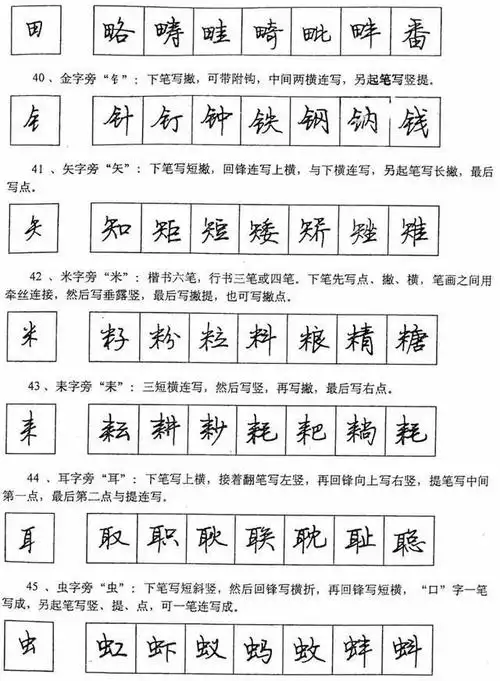 田 略 畴 畦 畸 毗 畔 番
40、金字旁“钅”：下笔写撇，可带附钩，中间两横连写，另起笔写竖提。
钅 针 钉 钟 铁 钢 钠 钱
41、矢字旁“矢”：下笔写短撇，回锋连写上横，与下横连写，另起笔写长撇，最后
写点。
矢 知 矩 短 矮 矫 矬 雉
42、米字旁“米”：楷书六笔，行书三笔或四笔。下笔先写点、撇、横，笔画之间用
牵丝连接，然后写垂露竖，最后写撇提，也可写撇点。
米 籽 粉 粒 料 粮 精 糖
43、耒字旁“耒”：三短横连写，然后写竖，再写撇，最后写右点。
耒 耘 耕 耖 耗 耙 耥 耗
44、耳字旁“耳”：下笔写上横，接着翻笔写左竖，再回锋向上写右竖，提笔写中间
第一点，最后第二点与提连写。
耳 取 职 耿 联 耽 耻 聪
45、虫字旁“虫”：下笔写短斜竖，然后回锋写横折，再回锋写短横，“口”字一笔
写成，另起笔写竖、提、点，可一笔连写成。
虫 虹 虾 蚁 蚂 蚊 蚌 蚪